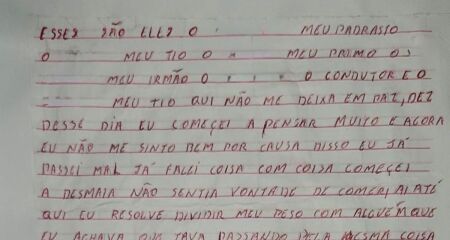 ESSES SÃO ELLES O MEU PADRASTO
O MEU TIO O MEU PRIMO O
MEU IRMÃO O O CONDUTOR E O
MEU TIO QUI NÃO ME DEIXA EM PAZ, DEZ
DESSE DIA EU COMEÇEI A PENSAR MUITO E AGORA
EU NÃO ME SINTO BEM POR CAUSA DISSO EU JÁ
PASSEI MAL JÁ FALEI COISA COM COISA COMEÇEI
A DESMAIA NÃO SENTIA VONTADE DE COMER, AI ATÉ
QUI EU RESOLVE DIVIDIR MEU PESO COM ALGUÉM QUE
EU ACHAVA QUE TAVA PASSANDO PELA MESMA COISA